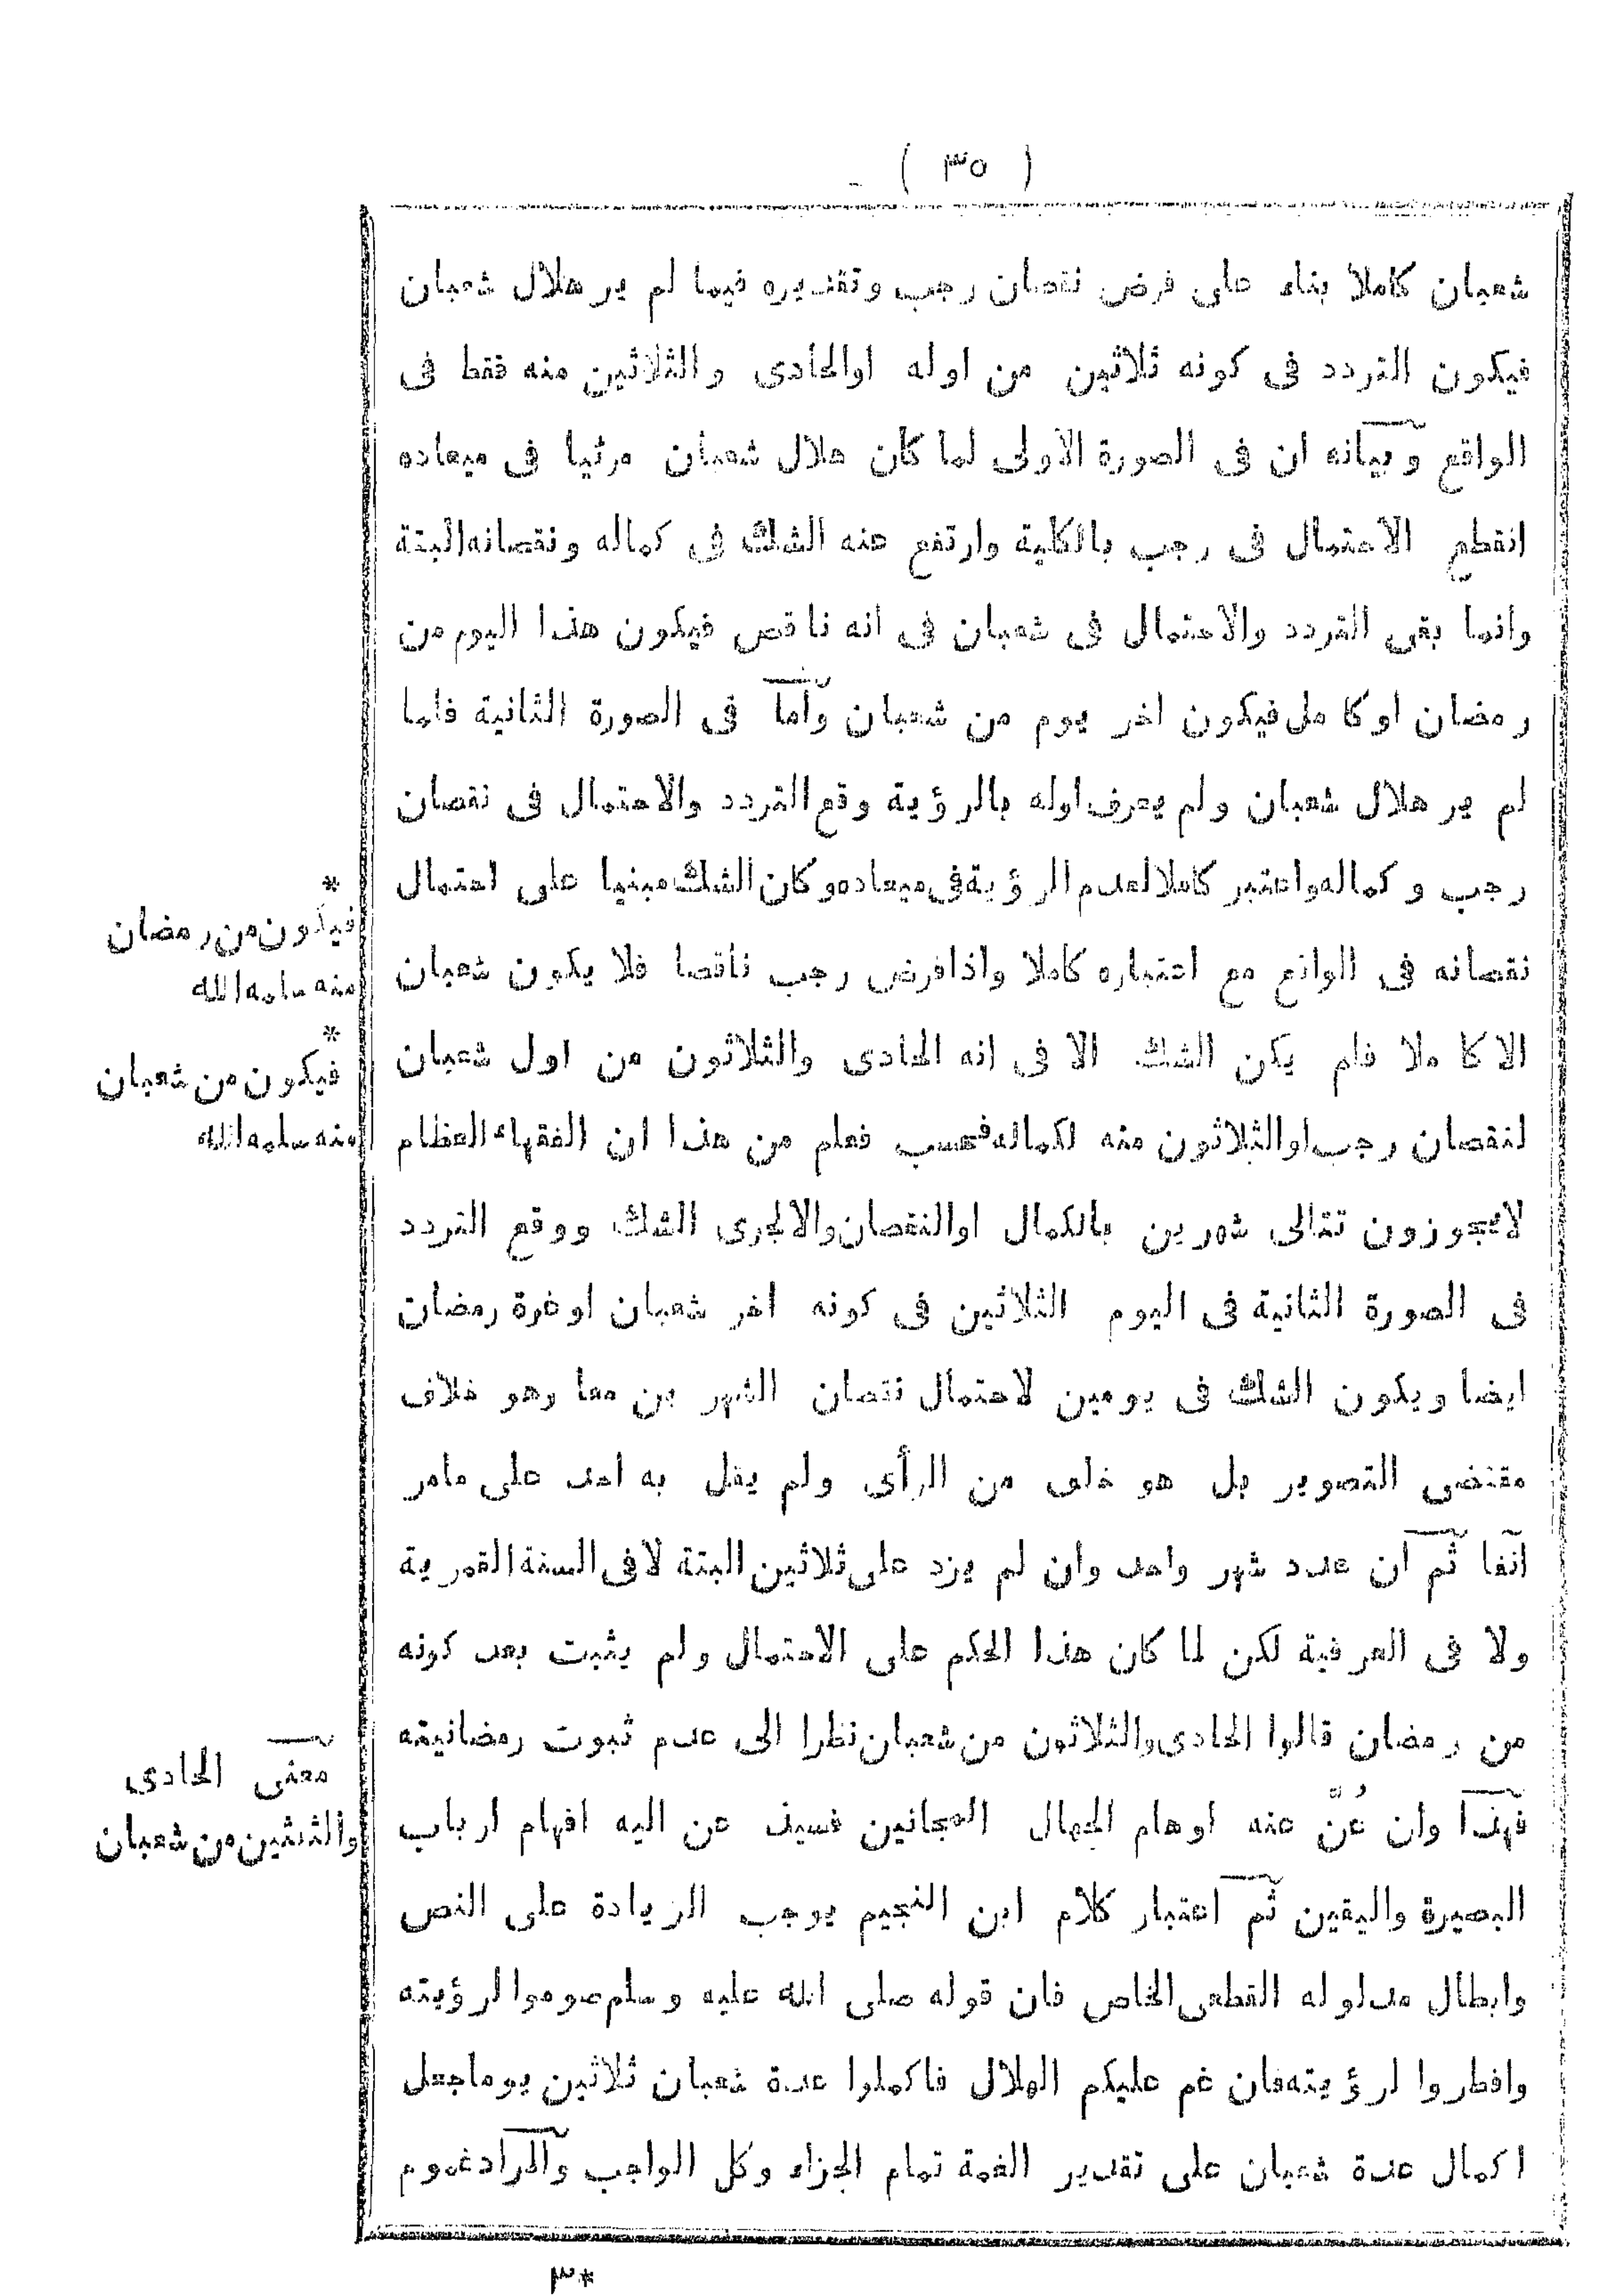 ( ٣٥ )
شعبان كاملا بناء على فرض نقصان رجب وتقديره فيما لم ير هلال شعبان
فيكون التردد فى كونه ثلاثين من اوله اوالحادى والثلاثين منه فقط فى
الواقع وبيانه ان فى الصورة الاولى لما كان هلال شعبان مرئيا فى ميعاده
انقطع الاحتمال فى رجب بالكلية وارتفع عنه الشك فى كماله ونقصانه البتة
وانما بقى التردد والاحتمال فى شعبان فى انه ناقص فيكون هذا اليوم من
رمضان اوكامل فيكون اخر يوم من شعبان وأما فى الصورة الثانية فلما
لم ير هلال شعبان ولم يعرف اوله بالرؤية وقع التردد والاحتمال فى نقصان
رجب وكماله واعتبر كاملا لعدم الرؤية فى ميعاده وكان الشك مبنيا على احتمال
نقصانه فى الواقع مع اعتباره كاملا واذا فرض رجب ناقصا فلا يكون شعبان
الا كاملا فلم يكن الشك الا فى انه الحادى والثلاثون من اول شعبان
لنقصان رجب اوالثلاثون منه لكماله فحسب فعلم من هذا ان الفقهاء العظام
لايجوزون تتالى شهرين بالكمال اوالنقصان والالجرى الشك ووقع التردد
فى الصورة الثانية فى اليوم الثلاثين فى كونه اخر شعبان اوغرة رمضان
ايضا ويكون الشك فى يومين لاحتمال نقصان الشهرين معا وهو خلاف
مقتضى التصوير بل هو خلف من الرأى ولم يقل به احد على مامر
آنفا ثم ان عدد شهر واحد وان لم يزد على ثلاثين البتة لا فى السنة القمرية
ولا فى العرفية لكن لما كان هذا الحكم على الاحتمال ولم يثبت بعد كونه
من رمضان قالوا الحادى والثلاثون من شعبان نظرا الى عدم ثبوت رمضانيته
فهذا وان عُنّ عنه اوهام الجهال المجانين فسيذ عن اليه افهام ارباب
البصيرة واليقين ثم اعتبار كلام ابن النجيم يوجب الزيادة على النص
وابطال مدلوله القطعى الخاص فان قوله صلى الله عليه وسلم صوموا لرؤيته
وافطروا لرؤيته فان غم عليكم الهلال فاكملوا عدة شعبان ثلاثين يوما جعل
اكمال عدة شعبان على تقدير الغمة تمام الجزاء وكل الواجب والمراد غموم
*
فيكون من رمضان
منه سلمه الله
*
فيكون من شعبان
منه سلمه الله
معنى الحادى
والثلثين من شعبان
*٣